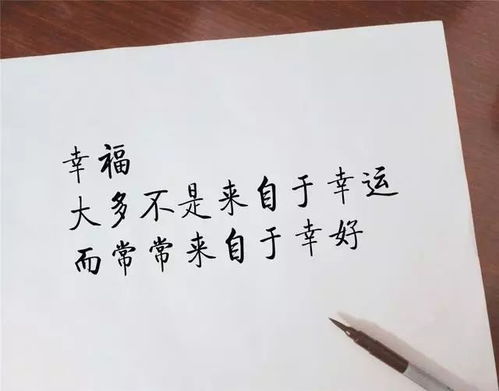 幸福
大多不是来自于幸运
而常常来自于幸好